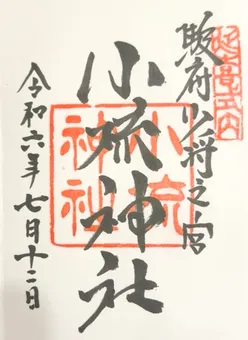 延喜式内
駿府少将之宮
小梳神社
小梳神社
令和六年七月十二日